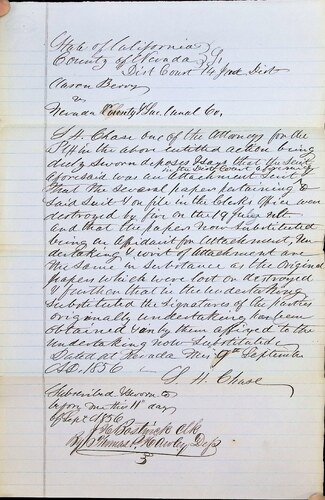 State of California
County of Nevada
Dist Court 14 Jud Dist
Aaron Berry
vs
Nevada County & Sac. Canal Co,
S. H. Chase one of the Attorneys for the
Pltff in the above entitled action being
duly sworn deposes & says that the Suit
in the Dist Court
aforesaid was an Attachment Suit
that the several papers pertaining to
said Suit & on file in the Clerks Office were
destroyed by fire on the 19 July
and that the papers now substituted
being an Affidavit for Attachment, Un-
dertaking & writ of Attachment are
the same in substance as the Original
papers which were lost or destroyed
& further that in the Undertaking
Substituted the signatures of the parties
originally undertaking has been
obtained & by them affixed to the
undertaking now Substituted.
Dated at Nevada this September
A.D. 1856
S. H. Chase
Subscribed & sworn to
before me this 11" day
of Sept 1856
Bostwick Clk
By Thomas P. Hawley Depy